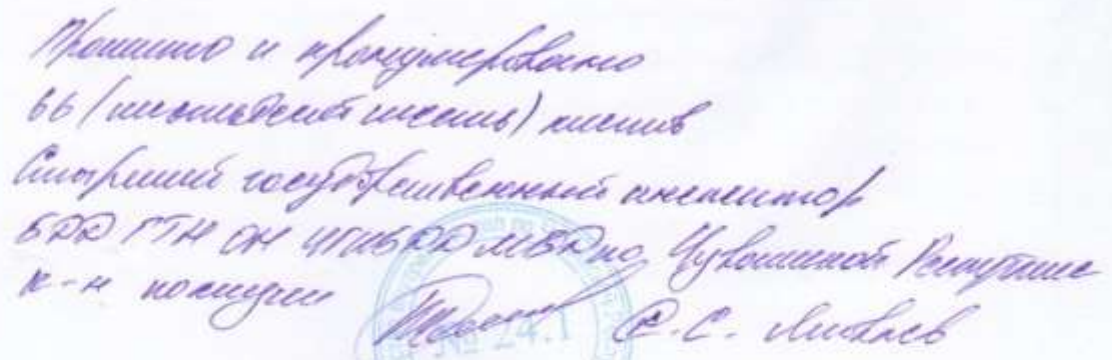 Прошито и пронумеровано
66 (шестьдесят шесть) листов
Старший государственный инспектор
БДД ГТН ОН УГИБДД МВД по Чувашской Республике
к-н полиции С.С.
№ 24.1